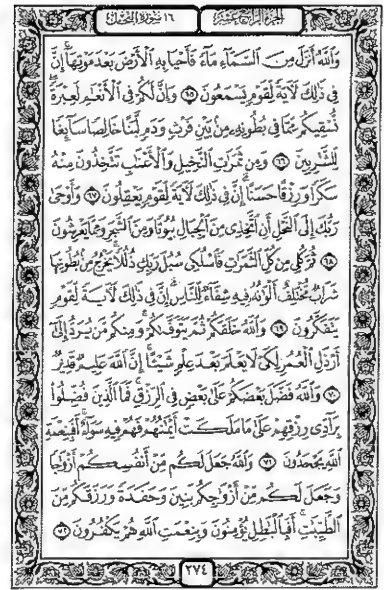 الجزء الرابع عشر
١٦ سورة النحل
وَٱللَّهُ أَنزَلَ مِنَ ٱلسَّمَآءِ مَآءً فَأَحْيَا بِهِ ٱلْأَرْضَ بَعْدَ مَوْتِهَآ ۚ إِنَّ
فِى ذَٰلِكَ لَآيَةً لِّقَوْمٍ يَسْمَعُونَ ٦٥ وَإِنَّ لَكُمْ فِى ٱلْأَنْعَٰمِ لَعِبْرَةً ۖ
نُّسْقِيكُم مِّمَّا فِى بُطُونِهِۦ مِنۢ بَيْنِ فَرْثٍ وَدَمٍ لَّبَنًا خَالِصًا سَآئِغًا
لِّلشَّٰرِبِينَ ٦٦ وَمِن ثَمَرَٰتِ ٱلنَّخِيلِ وَٱلْأَعْنَٰبِ تَتَّخِذُونَ مِنْهُ
سَكَرًا وَرِزْقًا حَسَنًا ۗ إِنَّ فِى ذَٰلِكَ لَآيَةً لِّقَوْمٍ يَعْقِلُونَ ٦٧ وَأَوْحَىٰ
رَبُّكَ إِلَى ٱلنَّحْلِ أَنِ ٱتَّخِذِى مِنَ ٱلْجِبَالِ بُيُوتًا وَمِنَ ٱلشَّجَرِ وَمِمَّا يَعْرِشُونَ
٦٨ ثُمَّ كُلِى مِن كُلِّ ٱلثَّمَرَٰتِ فَٱسْلُكِى سُبُلَ رَبِّكِ ذُلُلًا ۚ يَخْرُجُ مِنۢ بُطُونِهَا
شَرَابٌ مُّخْتَلِفٌ أَلْوَٰنُهُۥ فِيهِ شِفَآءٌ لِّلنَّاسِ ۗ إِنَّ فِى ذَٰلِكَ لَآيَةً لِّقَوْمٍ
يَتَفَكَّرُونَ ٦٩ وَٱللَّهُ خَلَقَكُمْ ثُمَّ يَتَوَفَّىٰكُمْ ۚ وَمِنكُم مَّن يُرَدُّ إِلَىٰٓ
أَرْذَلِ ٱلْعُمُرِ لِكَىْ لَا يَعْلَمَ بَعْدَ عِلْمٍ شَيْـًٔا ۚ إِنَّ ٱللَّهَ عَلِيمٌ قَدِيرٌ
٧٠ وَٱللَّهُ فَضَّلَ بَعْضَكُمْ عَلَىٰ بَعْضٍ فِى ٱلرِّزْقِ ۚ فَمَا ٱلَّذِينَ فُضِّلُوا۟
بِرَآدِّى رِزْقِهِمْ عَلَىٰ مَا مَلَكَتْ أَيْمَٰنُهُمْ فَهُمْ فِيهِ سَوَآءٌ ۚ أَفَبِنِعْمَةِ
ٱللَّهِ يَجْحَدُونَ ٧١ وَٱللَّهُ جَعَلَ لَكُم مِّنْ أَنفُسِكُمْ أَزْوَٰجًا
وَجَعَلَ لَكُم مِّنْ أَزْوَٰجِكُم بَنِينَ وَحَفَدَةً وَرَزَقَكُم مِّنَ
ٱلطَّيِّبَٰتِ ۚ أَفَبِٱلْبَٰطِلِ يُؤْمِنُونَ وَبِنِعْمَتِ ٱللَّهِ هُمْ يَكْفُرُونَ ٧٢
٢٧٤